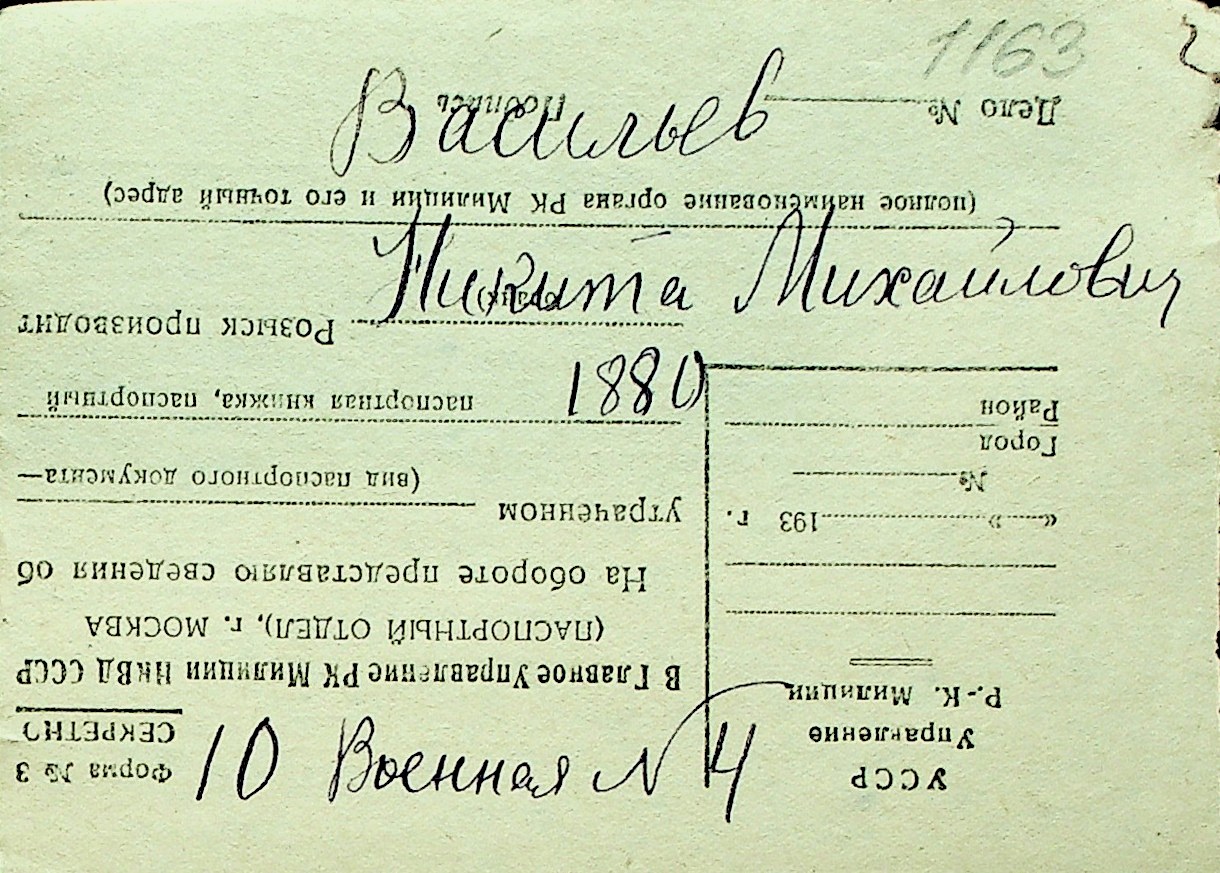 1163
Васильев
Никита Михайлович
1880
10 Военная N 4
УССР
Управление
Р.-К. Милиции
« » 193 г.
№
Город
Район
Форма № 3
СЕКРЕТНО
В Главное Управление РК Милиции НКВД СССР
(ПАСПОРТНЫЙ ОТДЕЛ), г. МОСКВА
На обороте представляю сведения об
утраченном
(вид паспортного документа—
паспортная книжка, паспортный
бланк)
Розыск производит
(полное наименование органа РК Милиции и его точный адрес)
Дело №
Подпись